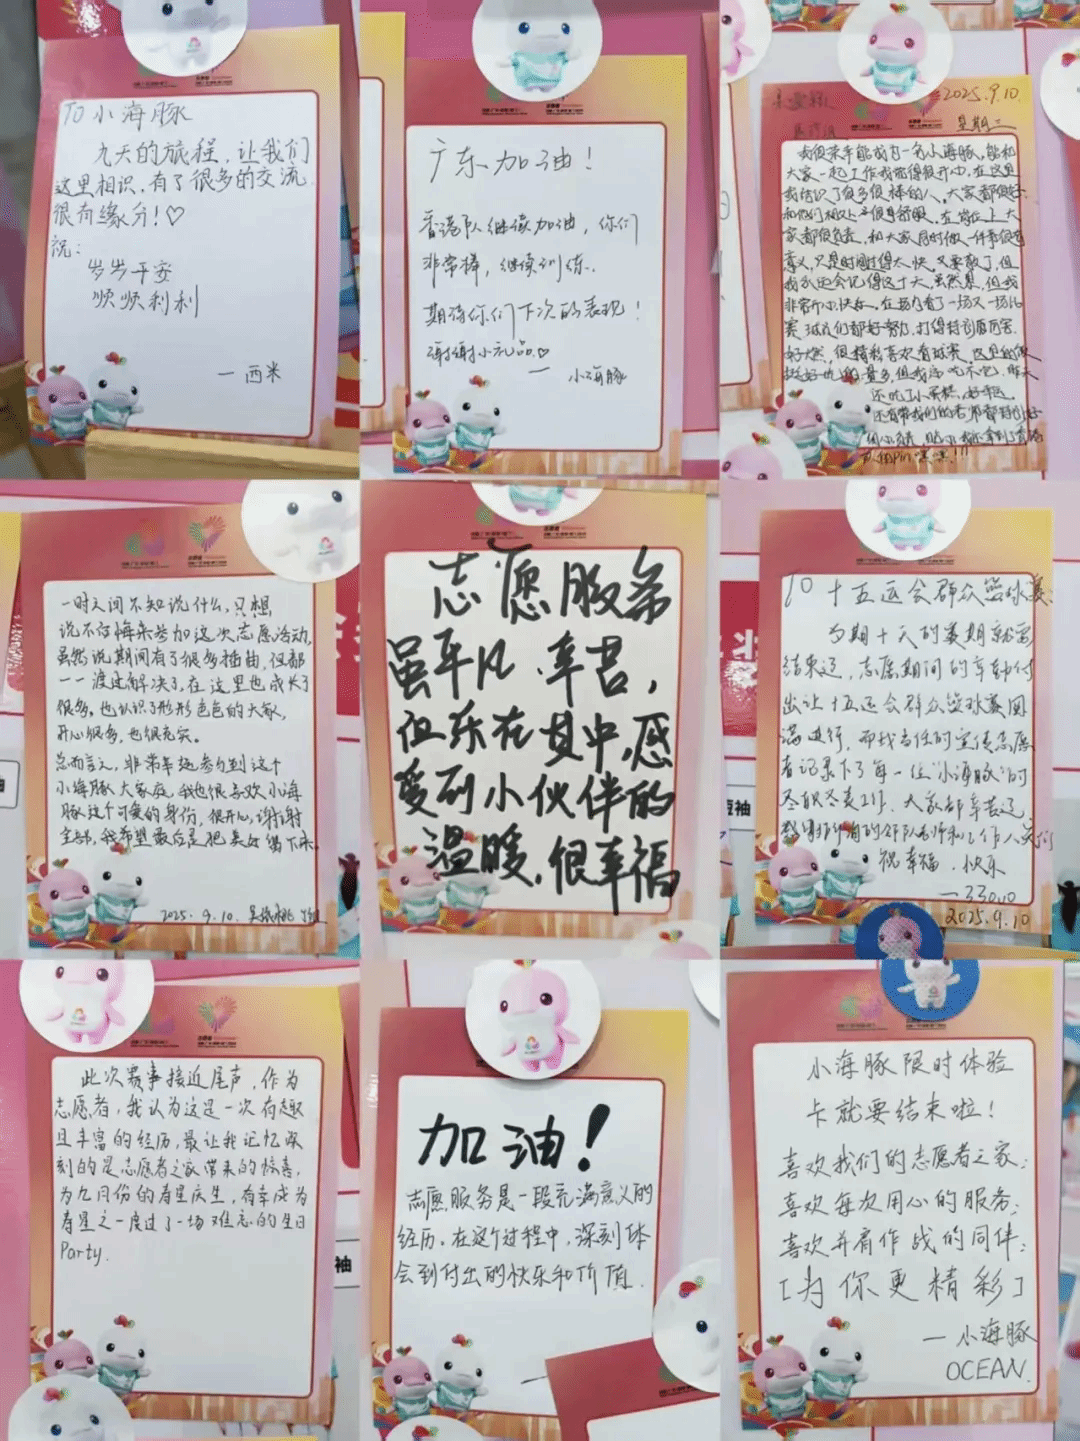 TO 小海豚
九天的旅程，让我们
这里相识，有了很多的交流
很有缘分！♡
祝：
岁岁平安
顺顺利利
一西米
广东加油！
香港队继续加油，你们
非常棒，继续训练．
期待你们下次的表现！
谢谢小礼品♡
一 小海豚
2025.9.10
我很荣幸能成为一名小海豚，能和
大家一起工作我觉得很开心，在这里
我结识了很多很棒的人，大家都很好
和他们相处 很舒服，在岗位上大
家都很负责，和大家同时做一件事很有
意义，只是时间过得太快，又要散了，但
我永远会记得这十天，虽然累，但我
非常开心快乐，在场内看了一场又一场比
赛
好燃，很精彩喜欢看球赛
还吃了小蛋糕，好幸运
一时之间不知说什么，只想
说不后悔来参加这次志愿活动，
虽然说期间有了很多插曲，但都
一一渡过解决了，在这里也成长了
很多，也认识了形形色色的大家，
开心很多，也很充实。
总而言之，非常幸运参与到这个
小海豚大家庭，我也很喜欢小海
豚这个可爱的身份，很开心，谢谢
全部，我希望最后是把美好留下来．
2025.9.10.
志愿服务
虽平凡．辛苦，
但乐在其中，感
受到小伙伴的
温暖，很幸福
TO 十五运会群众篮球赛：
为期十天的赛期就要
结束辽，志愿期间的辛勤付
出让十五运会群众篮球赛圆
满进行，而我担任的宣传志愿
者记录下了每一位“小海豚”的
尽职尽责工作．大家都辛苦辽，
祝幸福．快乐
2025.9.10
此次赛事接近尾声，作为
志愿者，我认为这是一次有趣
且丰富的经历，最让我记忆深
刻的是志愿者之家带来的惊喜，
为九月份的寿星庆生，有幸成为
寿星之一度过了一场难忘的生日
Party.
加油！
志愿服务是一段充满意义的
经历．在这个过程中，深刻体
会到付出的快乐和价值．
小海豚限时体验
卡就要结束啦！
喜欢我们的志愿者之家；
喜欢每次用心的服务；
喜欢并肩作战的同伴；
[为你更精彩]
一小海豚
OCEAN.
短袖
袖